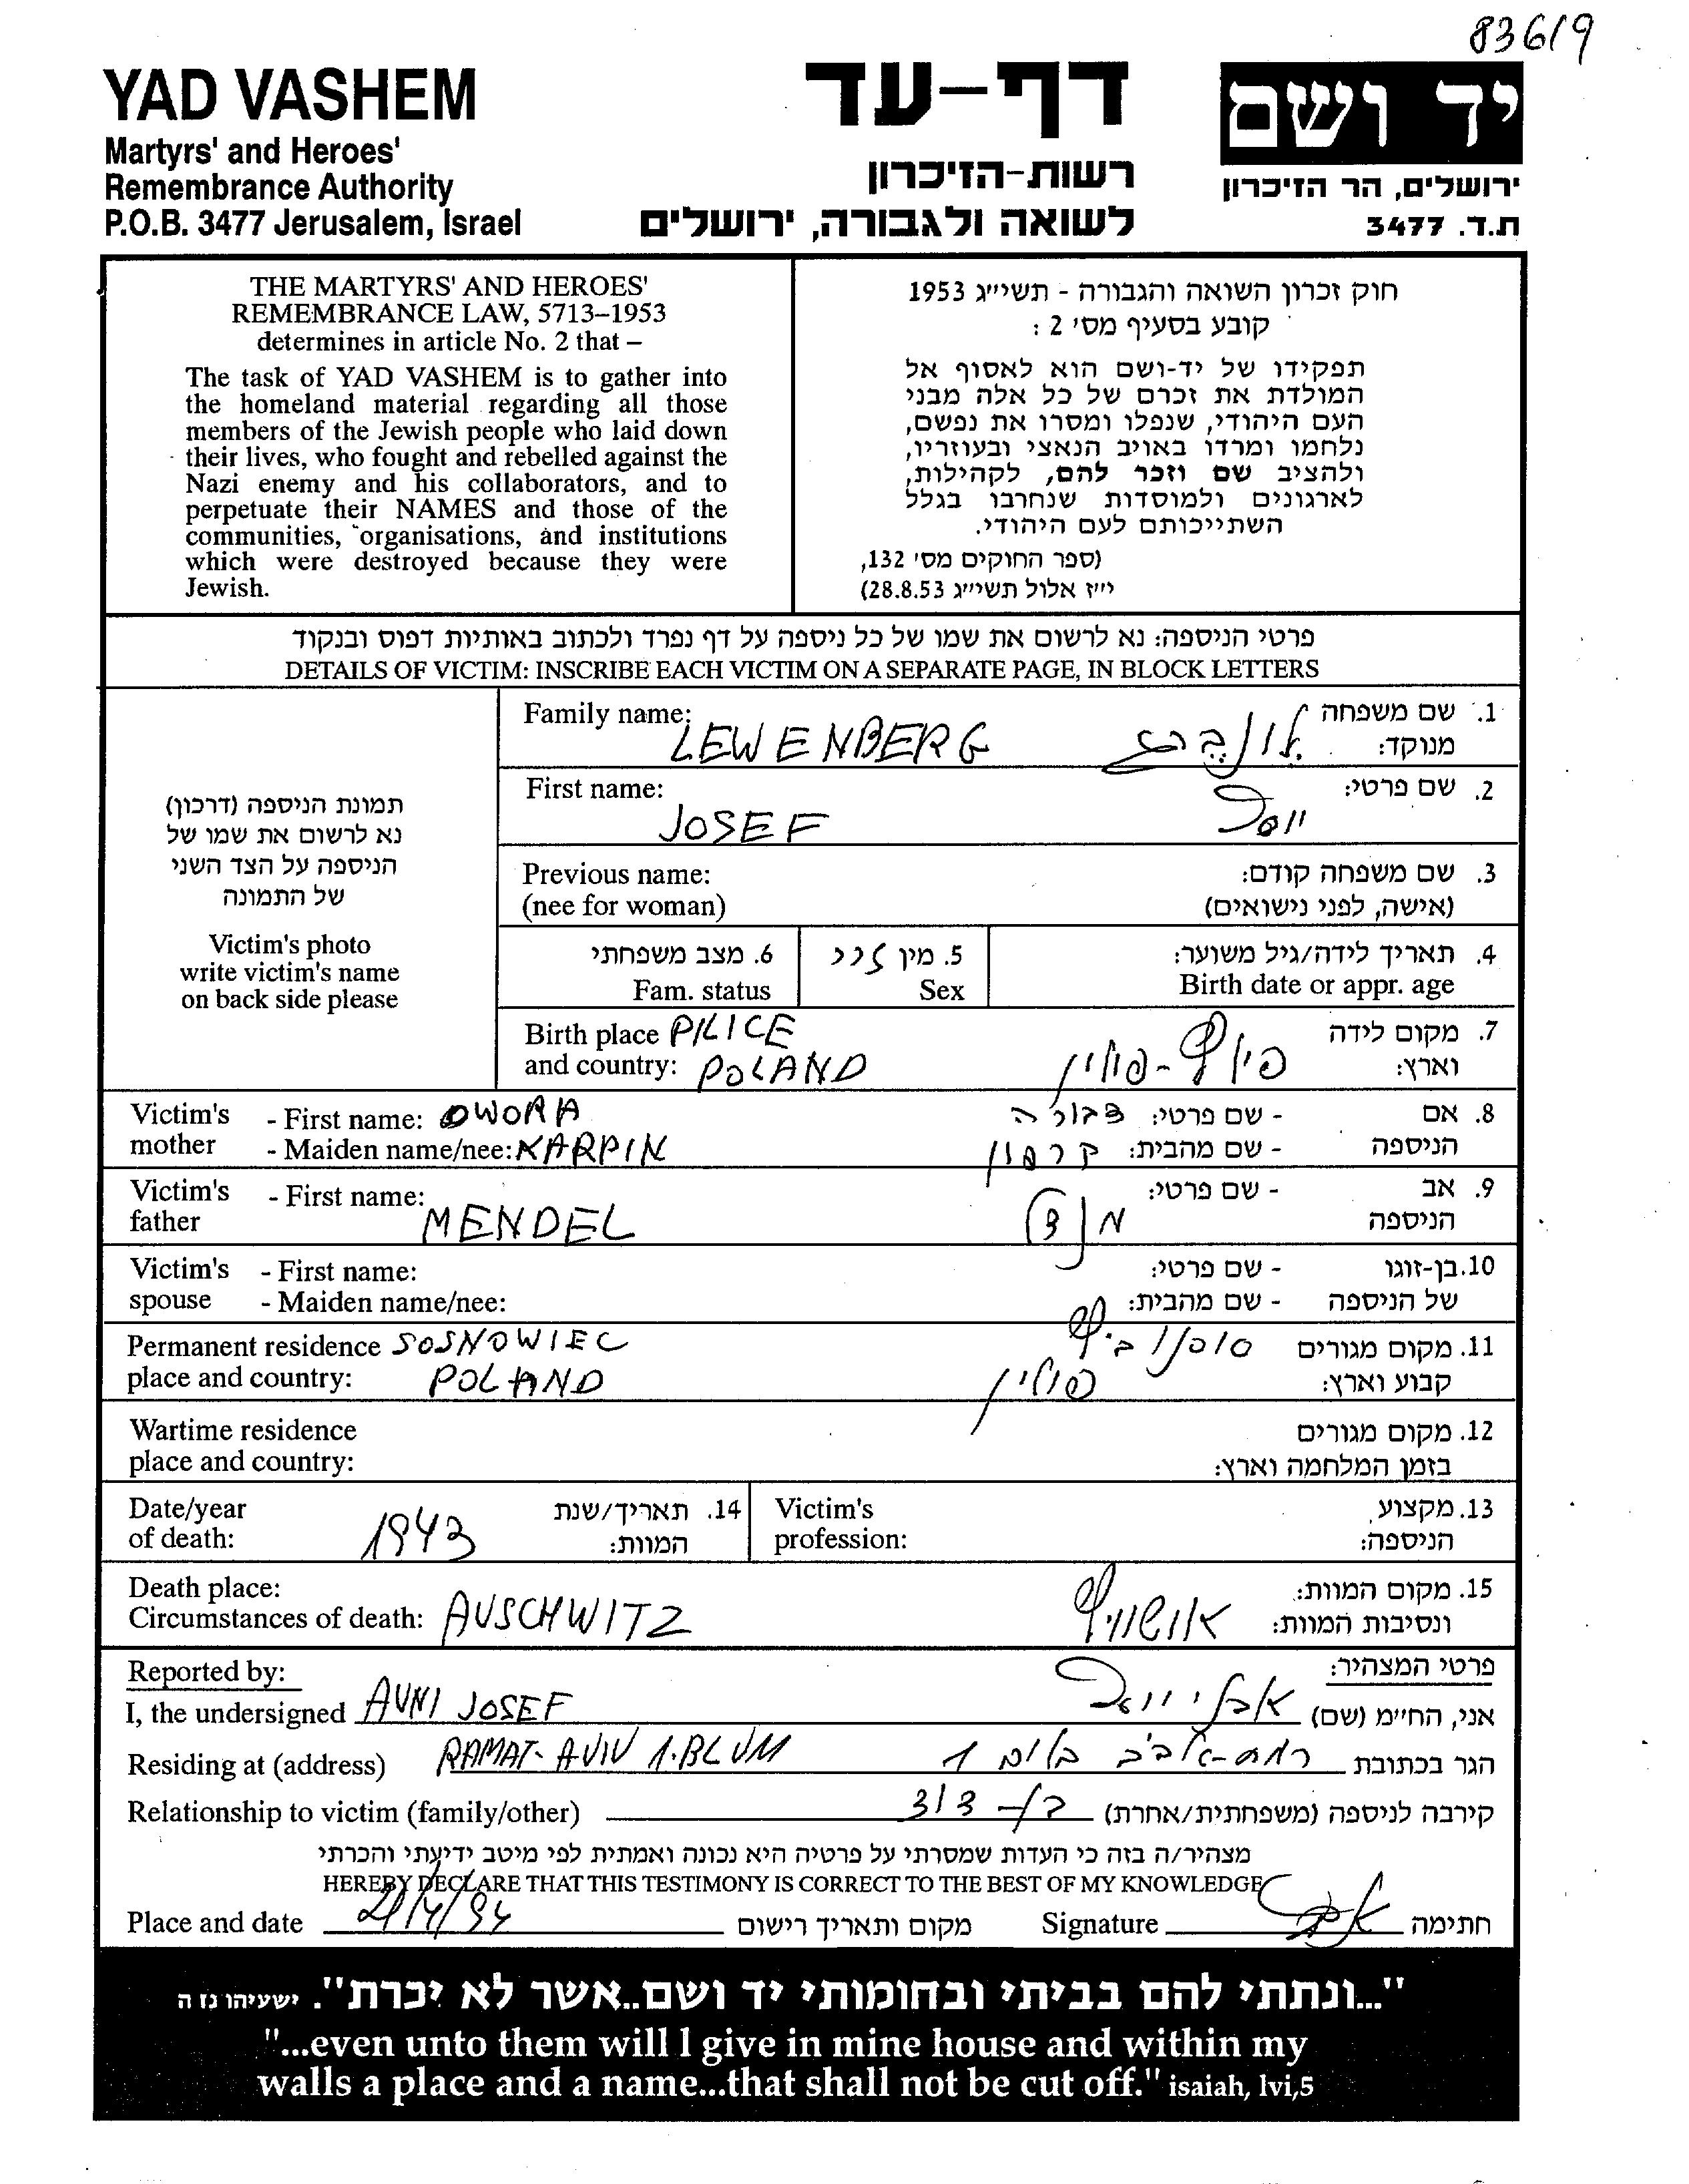 83619
YAD VASHEM
Martyrs' and Heroes'
Remembrance Authority
P.O.B. 3477 Jerusalem, Israel
דף-עד
רשות-הזיכרון
לשואה ולגבורה, ירושלים
יד ושם
ירושלים, הר הזיכרון
ת.ד. 3477
THE MARTYRS' AND HEROES'
REMEMBRANCE LAW, 5713–1953
determines in article No. 2 that –
The task of YAD VASHEM is to gather into
the homeland material regarding all those
members of the Jewish people who laid down
their lives, who fought and rebelled against the
Nazi enemy and his collaborators, and to
perpetuate their NAMES and those of the
communities, organisations, and institutions
which were destroyed because they were
Jewish.
חוק זכרון השואה והגבורה - תשי״ג 1953
קובע בסעיף מס' 2 :
תפקידו של יד-ושם הוא לאסוף אל
המולדת את זכרם של כל אלה מבני
העם היהודי, שנפלו ומסרו את נפשם,
נלחמו ומרדו באויב הנאצי ובעוזריו,
ולהציב שם וזכר להם, לקהילות,
לארגונים ולמוסדות שנחרבו בגלל
השתייכותם לעם היהודי.
(ספר החוקים מס' 132,
י״ז אלול תשי״ג 28.8.53)
פרטי הניספה: נא לרשום את שמו של כל ניספה על דף נפרד ולכתוב באותיות דפוס ובנקוד
DETAILS OF VICTIM: INSCRIBE EACH VICTIM ON A SEPARATE PAGE, IN BLOCK LETTERS
תמונת הניספה (דרכון)
נא לרשום את שמו של
הניספה על הצד השני
של התמונה
Victim's photo
write victim's name
on back side please
Family name: LEWENBERG לונברג 1. שם משפחה
מנוקד:
First name: JOSEF יוסף 2. שם פרטי:
Previous name: 3. שם משפחה קודם:
(nee for woman) (אישה, לפני נישואים)
6. מצב משפחתי 5. מין זכר 4. תאריך לידה/גיל משוער:
Fam. status Sex Birth date or appr. age
Birth place PILICE 7. מקום לידה
and country: POLAND פילץ-פולין וארץ:
Victim's - First name: DWORA דבורה - שם פרטי: 8. אם
mother - Maiden name/nee: KARPIN קרפין - שם מהבית: הניספה
Victim's - First name: MENDEL מנדל - שם פרטי: 9. אב
father הניספה
Victim's - First name: - שם פרטי: 10. בן-זוגו
spouse - Maiden name/nee: - שם מהבית: של הניספה
Permanent residence SOSNOWIEC סוסנוביץ 11. מקום מגורים
place and country: POLAND פולין קבוע וארץ:
Wartime residence 12. מקום מגורים
place and country: בזמן המלחמה וארץ:
Date/year 14. תאריך/שנת Victim's 13. מקצוע
of death: 1943 המוות: profession: הניספה:
Death place: 15. מקום המוות:
Circumstances of death: AUSCHWITZ אושוויץ ונסיבות המוות:
Reported by: פרטי המצהיר:
I, the undersigned AVNI JOSEF אבני יוסף אני, החי״מ (שם)
Residing at (address) RAMAT-AVIV 1.BLUM רמת-אביב בלום 1 הגר בכתובת
Relationship to victim (family/other) בן-דוד קירבה לניספה (משפחתית/אחרת)
מצהיר/ה בזה כי העדות שמסרתי על פרטיה היא נכונה ואמתית לפי מיטב ידיעתי והכרתי
HEREBY DECLARE THAT THIS TESTIMONY IS CORRECT TO THE BEST OF MY KNOWLEDGE
Place and date מקום ותאריך רישום Signature חתימה
"...ונתתי להם בביתי ובחומותי יד ושם..אשר לא יכרת". ישעיהו נז ה
"...even unto them will I give in mine house and within my
walls a place and a name...that shall not be cut off." isaiah, lvi,5